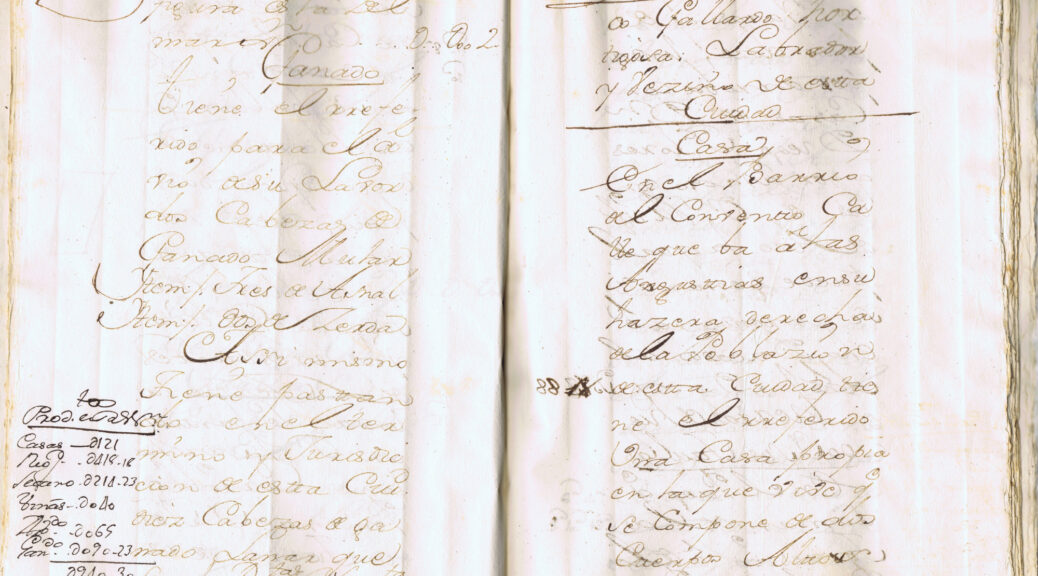 figura
Ganado
tiene el rrefe
rido para el
no de su Lavor
dos Cabezas de
Ganado Mular
Ytemp. Tres de Asnal
Ytemp. dos de Zerda
Assi mismo
tiene pastan
do en el ter
mino y Jurisdic
cion de esta Ciu.
diez Cabezas de ga
nado Lanar que
Casas - 0121
Secano - 0214-23
Viñas - 0040
0065
Gan. - 0090-23
Gallardo por
Labrador
y Vezino de esta
Ciudad
Casa
En el Barrio
del Convento Ca
lle que ba a las
Angustias en su
hazera derecha
de la Poblazion
88 de esta Ciudad tie
ne el rreferido
Una Casa propia
en la que vive y
se compone de dos
Cuerpos